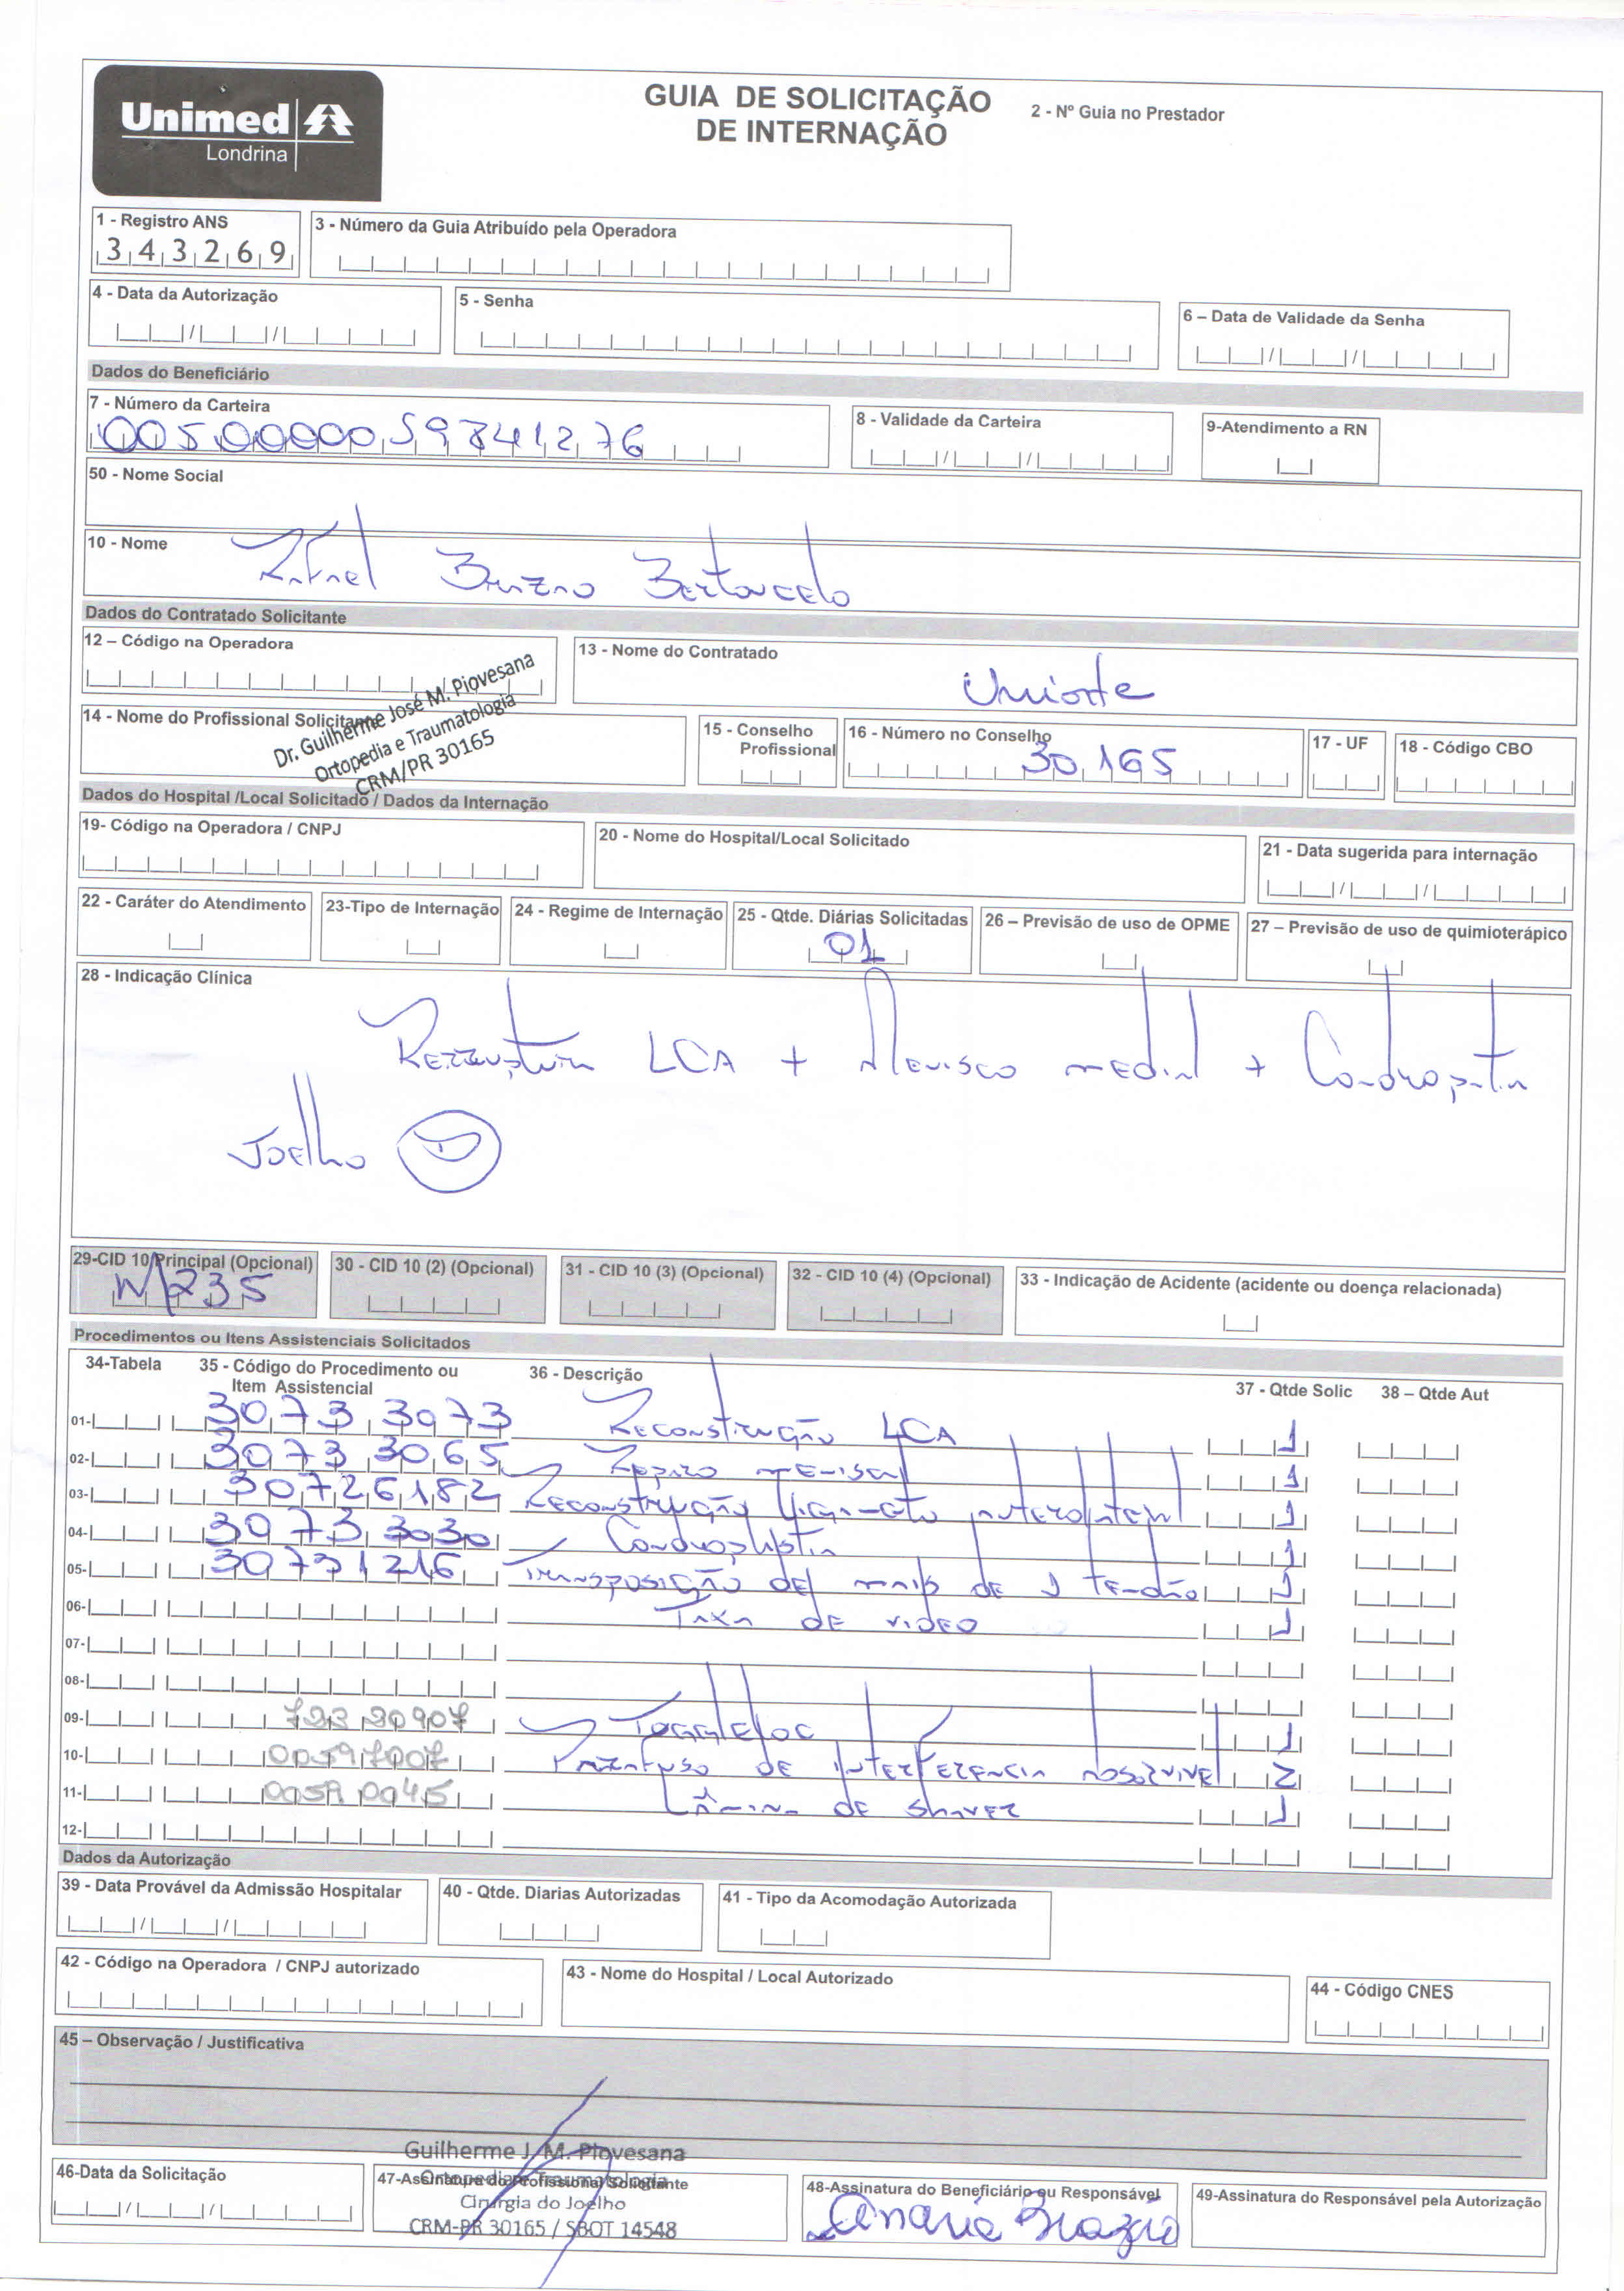 Unimed
Londrina
GUIA DE SOLICITAÇÃO
DE INTERNAÇÃO
2 - Nº Guia no Prestador
1 - Registro ANS
343269
3 - Número da Guia Atribuído pela Operadora
4 - Data da Autorização
5 - Senha
6 – Data de Validade da Senha
Dados do Beneficiário
7 - Número da Carteira
0050000059841276
8 - Validade da Carteira
9-Atendimento a RN
50 - Nome Social
10 - Nome
Rafael Bertoncelo
Dados do Contratado Solicitante
12 – Código na Operadora
13 - Nome do Contratado
Uniorte
14 - Nome do Profissional Solicitante
Dr. Guilherme José M. Piovesana
Ortopedia e Traumatologia
CRM/PR 30165
15 - Conselho
Profissional
16 - Número no Conselho
30165
17 - UF
18 - Código CBO
Dados do Hospital /Local Solicitado / Dados da Internação
19- Código na Operadora / CNPJ
20 - Nome do Hospital/Local Solicitado
21 - Data sugerida para internação
22 - Caráter do Atendimento
23-Tipo de Internação
24 - Regime de Internação
25 - Qtde. Diárias Solicitadas
01
26 – Previsão de uso de OPME
27 – Previsão de uso de quimioterápico
28 - Indicação Clínica
Rerruptura LCA + Menisco medial + Condropatia
Joelho D
29-CID 10 Principal (Opcional)
M235
30 - CID 10 (2) (Opcional)
31 - CID 10 (3) (Opcional)
32 - CID 10 (4) (Opcional)
33 - Indicação de Acidente (acidente ou doença relacionada)
Procedimentos ou Itens Assistenciais Solicitados
34-Tabela
35 - Código do Procedimento ou
Item Assistencial
36 - Descrição
37 - Qtde Solic
38 – Qtde Aut
01- 30733073 Reconstrução LCA 1
02- 30733065 Reparo meniscal 1
03- 30726182 Reconstrução ligamento 1
04- 30733030 Condroplastia 1
05- 30731216 Transposição de mais de 1 tendão 1
06- Taxa de video 1
07-
08-
09- 72290907 Toggleloc 1
10- 00597007 Parafuso de interferencia absorvivel 2
11- 00590045 Lâmina de shaver 1
12-
Dados da Autorização
39 - Data Provável da Admissão Hospitalar
40 - Qtde. Diarias Autorizadas
41 - Tipo da Acomodação Autorizada
42 - Código na Operadora / CNPJ autorizado
43 - Nome do Hospital / Local Autorizado
44 - Código CNES
45 – Observação / Justificativa
46-Data da Solicitação
47-Assinatura do Profissional Solicitante
Guilherme J. M. Piovesana
Ortopedia e Traumatologia
Cirurgia do Joelho
CRM-PR 30165 / SBOT 14548
48-Assinatura do Beneficiário ou Responsável
49-Assinatura do Responsável pela Autorização